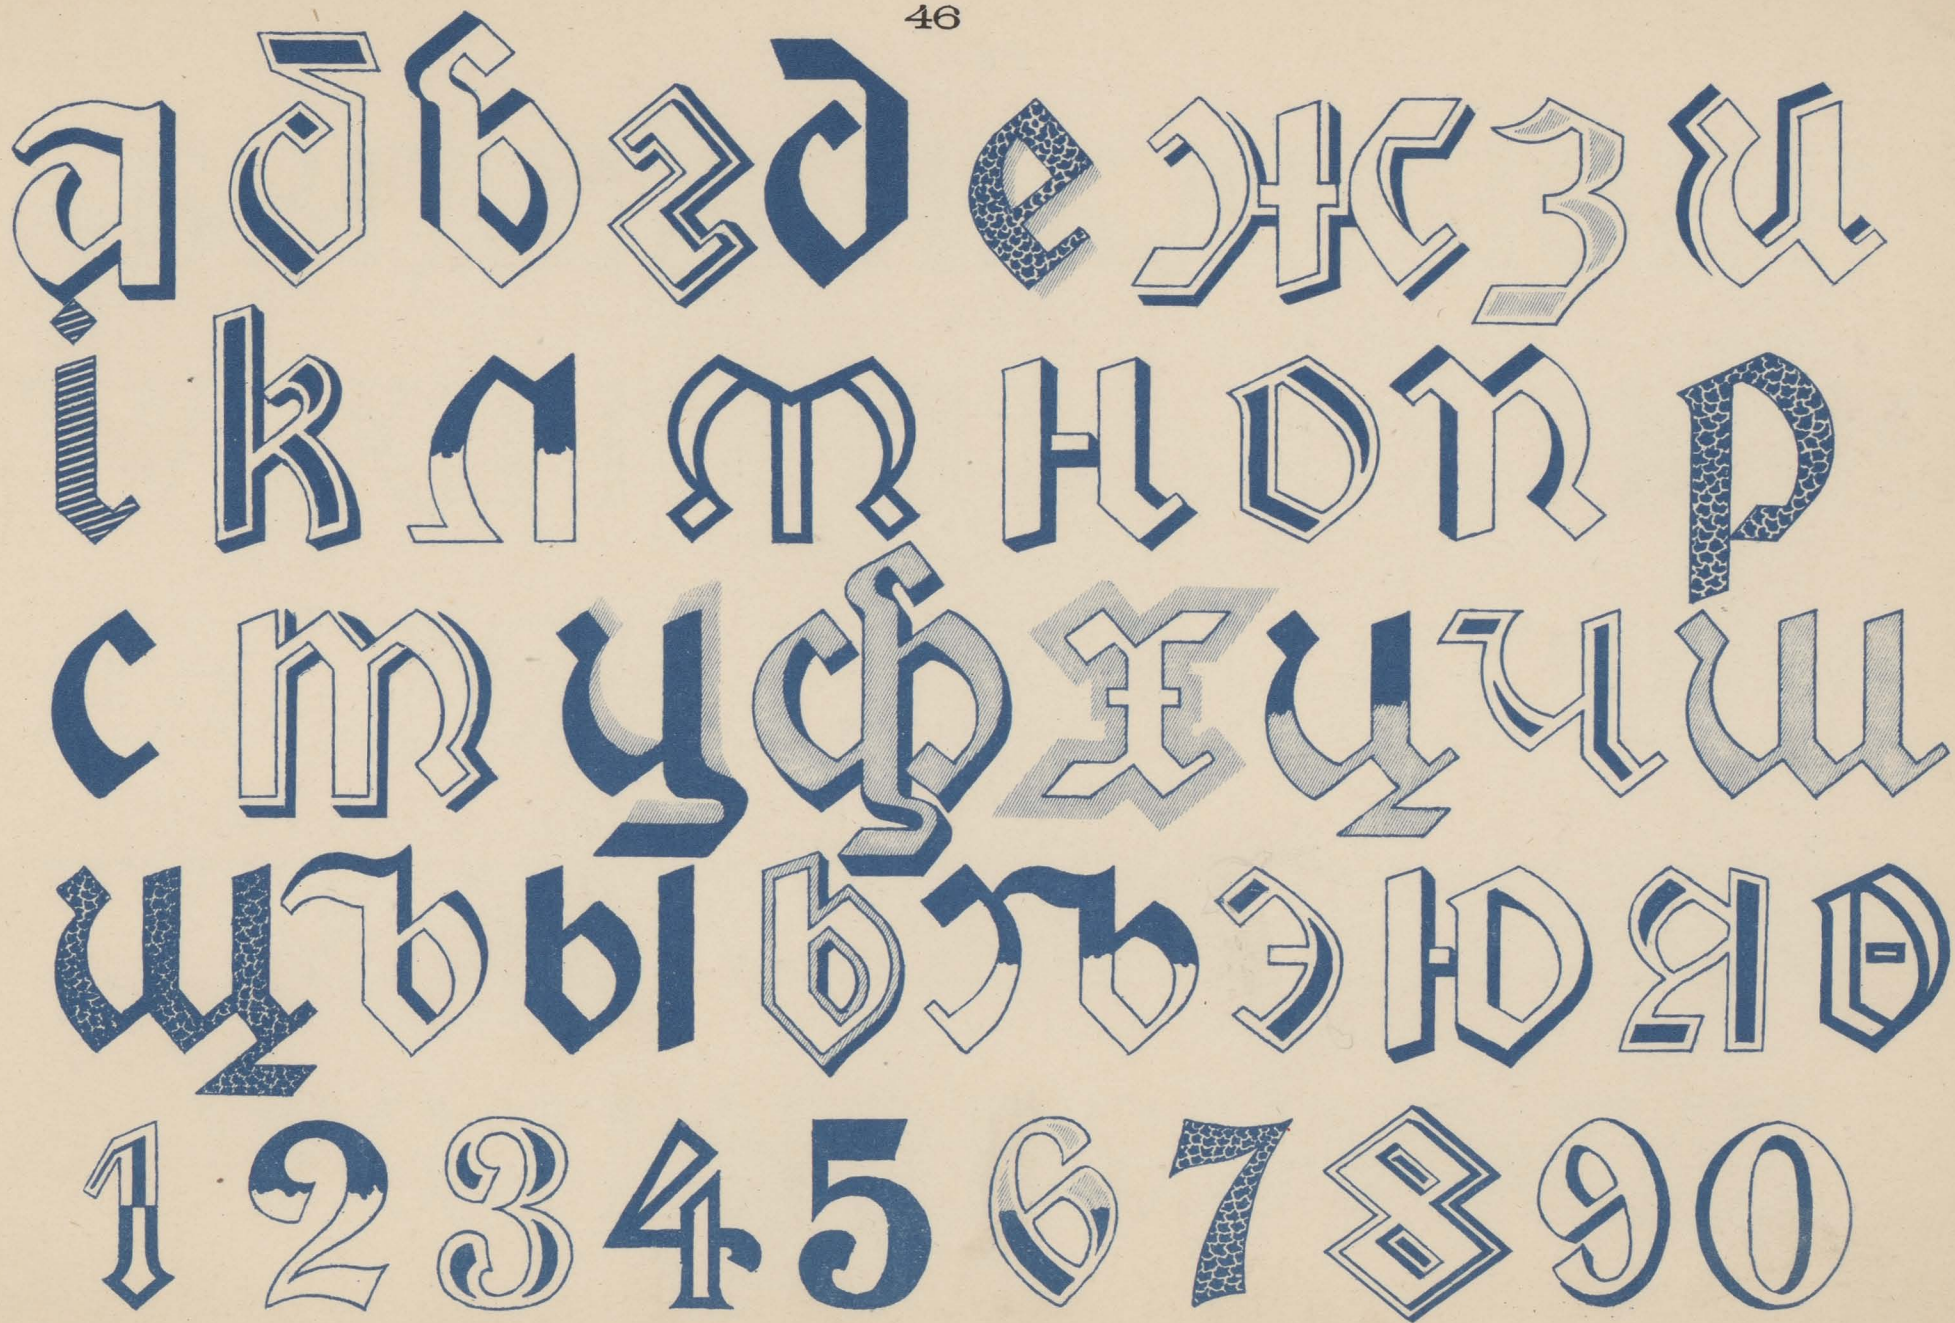 46
а б в г д е ж з и
і к л м н о п р
с т у ф х ц ч ш
щ ъ ы ь ѣ э ю я ѳ
1 2 3 4 5 6 7 8 9 0